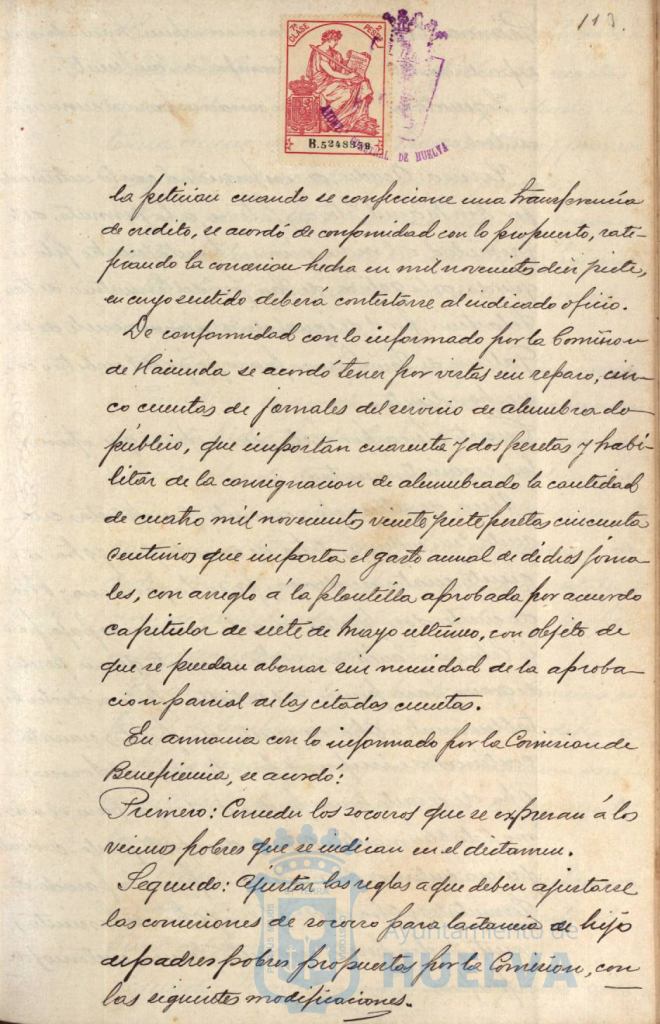 113.
7ª CLASE
PESETA
B.5248959
DE HUELVA
la peticion cuando se confeccione una transferencia
de credito, se acordó de conformidad con lo propuesto, rati-
ficando la concesion hecha en mil novecientos diez y siete,
en cuyo sentido deberá contestarse al indicado oficio.
De conformidad con lo informado por la Comision
de Hacienda se acordó tener por vistas sin reparo, cin-
co cuentas de jornales del servicio de alumbrado
público, que importan cuarenta y dos pesetas y habi-
litar de la consignacion de alumbrado la cantidad
de cuatro mil novecientos veinte y siete pesetas cincuenta
centimos que importa el gasto anual de dichos jorna-
les, con arreglo á la plantilla aprobada por acuerdo
capitular de siete de Mayo ultimo, con objeto de
que se puedan abonar sin necesidad de la aproba-
cion parcial de las citadas cuentas.
En armonia con lo informado por la Comision de
Beneficencia, se acordó:
Primero: Conceder los socorros que se expresan á los
vecinos pobres que se indican en el dictamen.
Segundo: Ajustar las reglas a que deben ajustarse
las concesiones de socorro para lactancia de hijo
de padres pobres propuestas por la Comisión, con
las siguientes modificaciones.
Ayuntamiento de
HUELVA